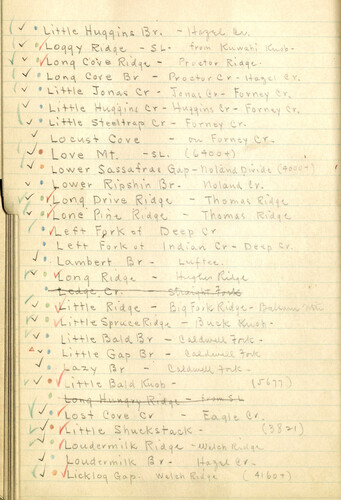 Little Huggins Br. - Hazel Cr.
Loggy Ridge - SL - from Kuwahi Knob
Long Cove Ridge - Proctor Ridge
Long Cove Br - Proctor Cr - Hazel Cr.
Little Jonas Cr - Jonas Cr - Forney Cr.
Little Huggins Cr - Huggins Cr - Forney Cr.
Little Steeltrap Cr - Forney Cr.
Locust Cove - on Forney Cr.
Love Mt. - SL. (6400+)
Lower Sassafras Gap - Noland Divide (4000+)
Lower Ripshin Br. - Noland Cr.
Long Drive Ridge - Thomas Ridge
Lone Pine Ridge - Thomas Ridge
Left Fork of Deep Cr
Left Fork of Indian Cr - Deep Cr.
Lambert Br - Luftee
Long Ridge - Hughes Ridge
Ledge Cr. - Straight Fork
Little Ridge - Big Fork Ridge - Balsam Mtn
Little Spruce Ridge - Buck Knob
Little Bald Br - Caldwell Fork
Little Gap Br - Caldwell Fork
Lazy Br - Caldwell Fork
Little Bald Knob - (5677)
Long Hungry Ridge - from SL
Lost Cove Cr - Eagle Cr.
Little Shuckstack - (3821)
Loudermilk Ridge - Welch Ridge
Loudermilk Br. - Hazel Cr.
Licklog Gap - Welch Ridge (4160+)